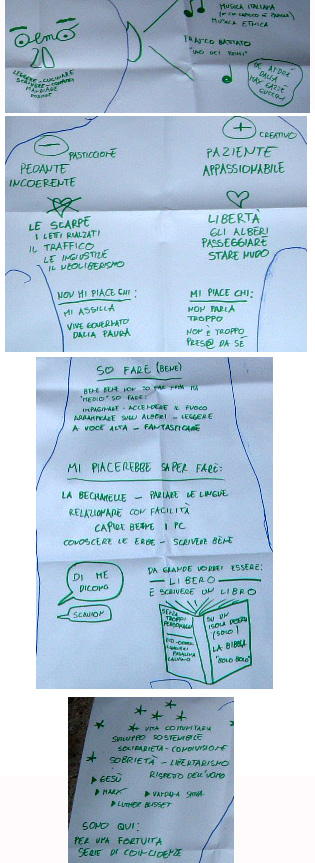 MUSICA ITALIANA
MUSICA ETNICA
FRANCO BATTIATO
DE ANDRÉ
DALLA
MAX GAZZÈ
GUCCINI
LEGGERE - CUCINARE
PASTICCIONE
PEDANTE
INCOERENTE
CREATIVO
PAZIENTE
APPASSIONABILE
LE SCARPE
I LETTI RIALZATI
IL TRAFFICO
LE INGIUSTIZIE
IL NEOLIBERISMO
LIBERTÀ
GLI ALBERI
PASSEGGIARE
STARE NUDO
NON MI PIACE CHI:
MI ASSILLA
VIVE GOVERNATO
DALLA PAURA
MI PIACE CHI:
NON PARLA
TROPPO
NON È TROPPO
PRES@ DA SÉ
SO FARE (BENE)
BENE BENE NON SO FAR NIENTE MA
"MEDIO" SO FARE:
IMPAGINARE - ACCENDERE IL FUOCO
ARRAMPICARE SUGLI ALBERI - LEGGERE
A VOCE ALTA - FANTASTICARE
MI PIACEREBBE SAPER FARE:
LA BECHAMELLE - PARLARE LE LINGUE
RELAZIONARE CON FACILITÀ
CAPIRE BENE I PC
CONOSCERE LE ERBE - SCRIVERE BENE
DI ME
DICONO
DA GRANDE VORREI ESSERE:
LIBERO
E SCRIVERE UN LIBRO
SENZA
TROPPI
PERSONAGGI
SU UN
ISOLA DESERTA
(SOLO)
LA BIBBIA
"SOLO SOLO"
VITA COMUNITARIA
SVILUPPO SOSTENIBILE
SOLIDARIETÀ - CONDIVISIONE
SOBRIETÀ - LIBERTARISMO
RISPETTO DELL'UOMO
GESÙ
MARX
VANDANA SHIVA
LUTHER BLISSET
SONO QUI:
PER UNA FORTUITA
SERIE DI COINCIDENZE